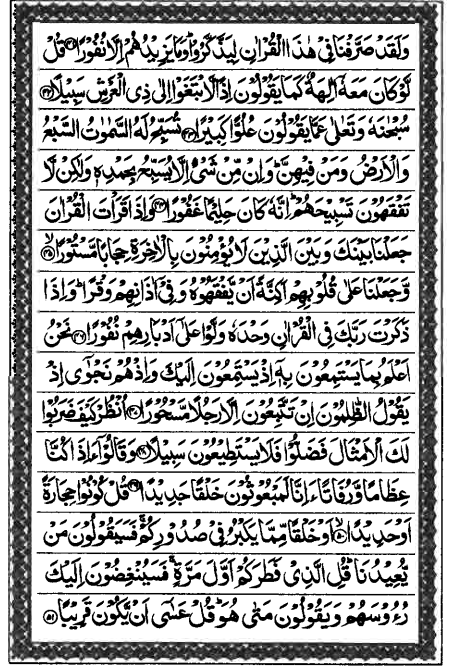 وَلَقَدْ صَرَّفْنَا فِیْ هٰذَا الْقُرْاٰنِ لِیَذَّكَّرُوْا ؕ وَمَا یَزِیْدُهُمْ اِلَّا نُفُوْرًا ۝۴۱ قُلْ
لَّوْ كَانَ مَعَهٗۤ اٰلِهَةٌ كَمَا یَقُوْلُوْنَ اِذًا لَّابْتَغَوْا اِلٰی ذِی الْعَرْشِ سَبِیْلًا ۝۴۲
سُبْحٰنَهٗ وَتَعٰلٰی عَمَّا یَقُوْلُوْنَ عُلُوًّا كَبِیْرًا ۝۴۳ تُسَبِّحُ لَهُ السَّمٰوٰتُ السَّبْعُ
وَالْاَرْضُ وَمَنْ فِیْهِنَّ ؕ وَاِنْ مِّنْ شَیْءٍ اِلَّا یُسَبِّحُ بِحَمْدِهٖ وَلٰكِنْ لَّا
تَفْقَهُوْنَ تَسْبِیْحَهُمْ ؕ اِنَّهٗ كَانَ حَلِیْمًا غَفُوْرًا ۝۴۴ وَاِذَا قَرَاْتَ الْقُرْاٰنَ
جَعَلْنَا بَیْنَكَ وَبَیْنَ الَّذِیْنَ لَا یُؤْمِنُوْنَ بِالْاٰخِرَةِ حِجَابًا مَّسْتُوْرًا ۝۴۵ۙ
وَّجَعَلْنَا عَلٰی قُلُوْبِهِمْ اَكِنَّةً اَنْ یَّفْقَهُوْهُ وَفِیْۤ اٰذَانِهِمْ وَقْرًا ؕ وَاِذَا
ذَكَرْتَ رَبَّكَ فِی الْقُرْاٰنِ وَحْدَهٗ وَلَّوْا عَلٰۤی اَدْبَارِهِمْ نُفُوْرًا ۝۴۶ نَحْنُ
اَعْلَمُ بِمَا یَسْتَمِعُوْنَ بِهٖۤ اِذْ یَسْتَمِعُوْنَ اِلَیْكَ وَاِذْ هُمْ نَجْوٰۤی اِذْ
یَقُوْلُ الظّٰلِمُوْنَ اِنْ تَتَّبِعُوْنَ اِلَّا رَجُلًا مَّسْحُوْرًا ۝۴۷ اُنْظُرْ كَیْفَ ضَرَبُوْا
لَكَ الْاَمْثَالَ فَضَلُّوْا فَلَا یَسْتَطِیْعُوْنَ سَبِیْلًا ۝۴۸ وَقَالُوْۤا ءَاِذَا كُنَّا
عِظَامًا وَّرُفَاتًا ءَاِنَّا لَمَبْعُوْثُوْنَ خَلْقًا جَدِیْدًا ۝۴۹ قُلْ كُوْنُوْا حِجَارَةً
اَوْ حَدِیْدًا ۝۵۰ۙ اَوْ خَلْقًا مِّمَّا یَكْبُرُ فِیْ صُدُوْرِكُمْ ۚ فَسَیَقُوْلُوْنَ مَنْ
یُّعِیْدُنَا ؕ قُلِ الَّذِیْ فَطَرَكُمْ اَوَّلَ مَرَّةٍ ۚ فَسَیُنْغِضُوْنَ اِلَیْكَ
رُءُوْسَهُمْ وَیَقُوْلُوْنَ مَتٰی هُوَ ؕ قُلْ عَسٰۤی اَنْ یَّكُوْنَ قَرِیْبًا ۝۵۱